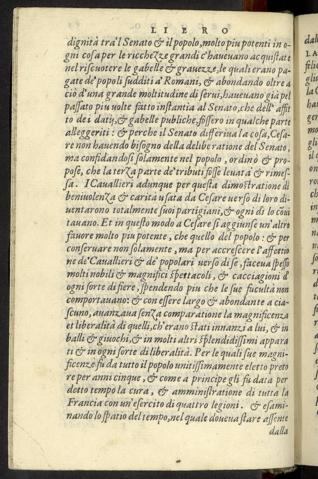 LIBRO
dignità tra'l Senato & il popolo, molto piu potenti in o-
gni cosa per le ricchezze grandi c'haueuano acquistate
nel riscuotere le gabelle & grauezze, le quali erano pa-
gate de' popoli sudditi a' Romani, & abondando oltre a
ciò d'una grande moltitudine di serui, haueuano già pel
passato piu uolte fatto instantia al Senato, che dell' affit
to dei datij, & gabelle publiche, fossero in qualche parte
alleggeriti : & perche il Senato differiua la cosa, Cesa-
re non hauendo bisogno della deliberatione del Senato,
ma confidandosi solamente nel popolo, ordinò & pro-
pose, che la terza parte de' tributi fosse leuata & rimes-
sa. I Cauallieri adunque per questa dimostratione di
beniuolenza & carità usata da Cesare uerso di loro di-
uentarono totalmente suoi partigiani, & ogni dì lo cōui
tauano. Et in questo modo a Cesare si aggiunse un'altro
fauore molto piu potente, che quello del popolo : & per
conseruare non solamente, ma per accrescere l'affettio
ne de' Cauallieri & de' popolari uerso di se, faceua spesso
molti nobili & magnifici spettacoli, & cacciagioni d'
ogni sorte di fiere, spendendo piu che le sue facultà non
comportauano: & con essere largo & abondante a cia-
scuno, auanzaua senza comparatione la magnificenza
et liberalità di quelli, ch'erano stati innanzi a lui, & in
balli & giuochi, & in molti altri splendidissimi appara
ti & in ogni sorte di liberalità. Per le quali sue magni-
ficenze fu da tutto il popolo unitissimamente eletto preto
re per anni cinque, & come a principe gli fu data per
detto tempo la cura, & amministratione di tutta la
Francia con un'esercito di quattro legioni. & esami-
nando lo spatio del tempo, nel quale doueua stare assente
dalla